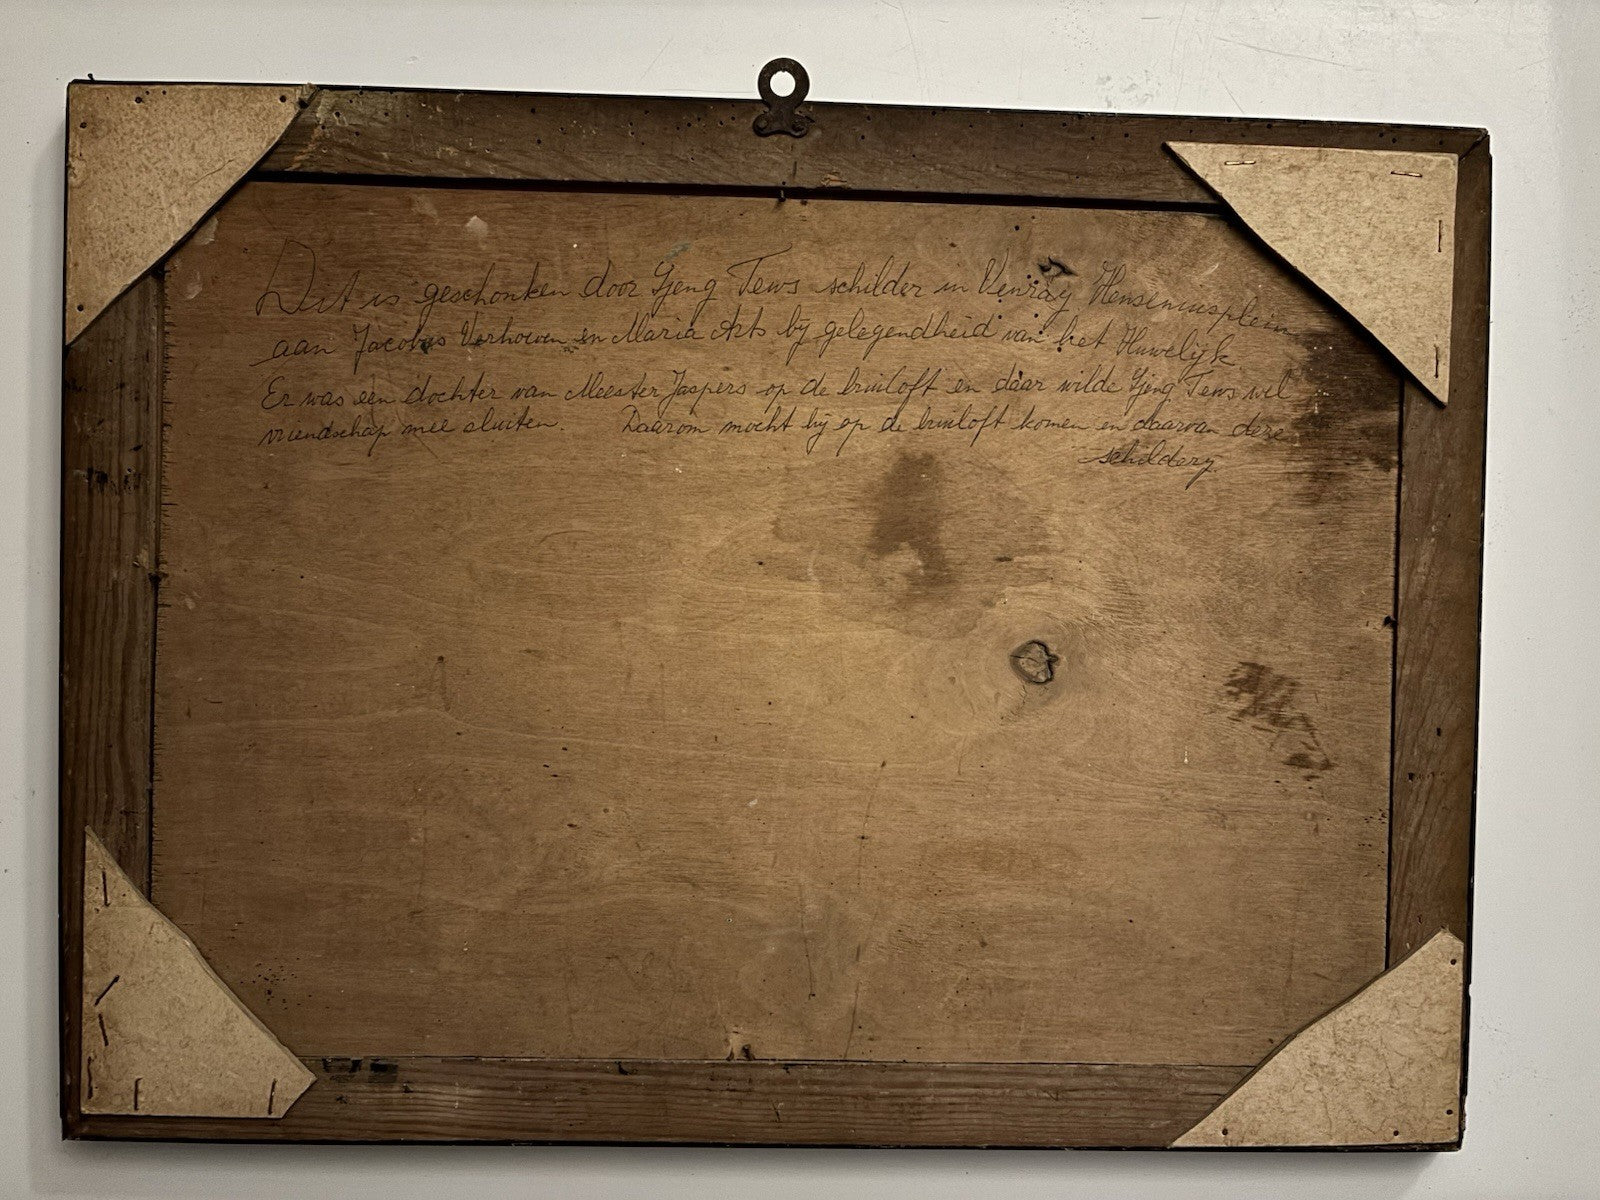 Dit is geschonken door Gjeng Tews schilder in Venray Henseniusplein
aan Jacobus Verhoeven en Maria Arts bij gelegendheid van het Huwelijk
Er was een dochter van Meester Jaspers op de bruiloft en daar wilde Gjeng Tews wel
vriendschap mee sluiten. Daarom mocht hij op de bruiloft komen en daarvan deze
schildery.